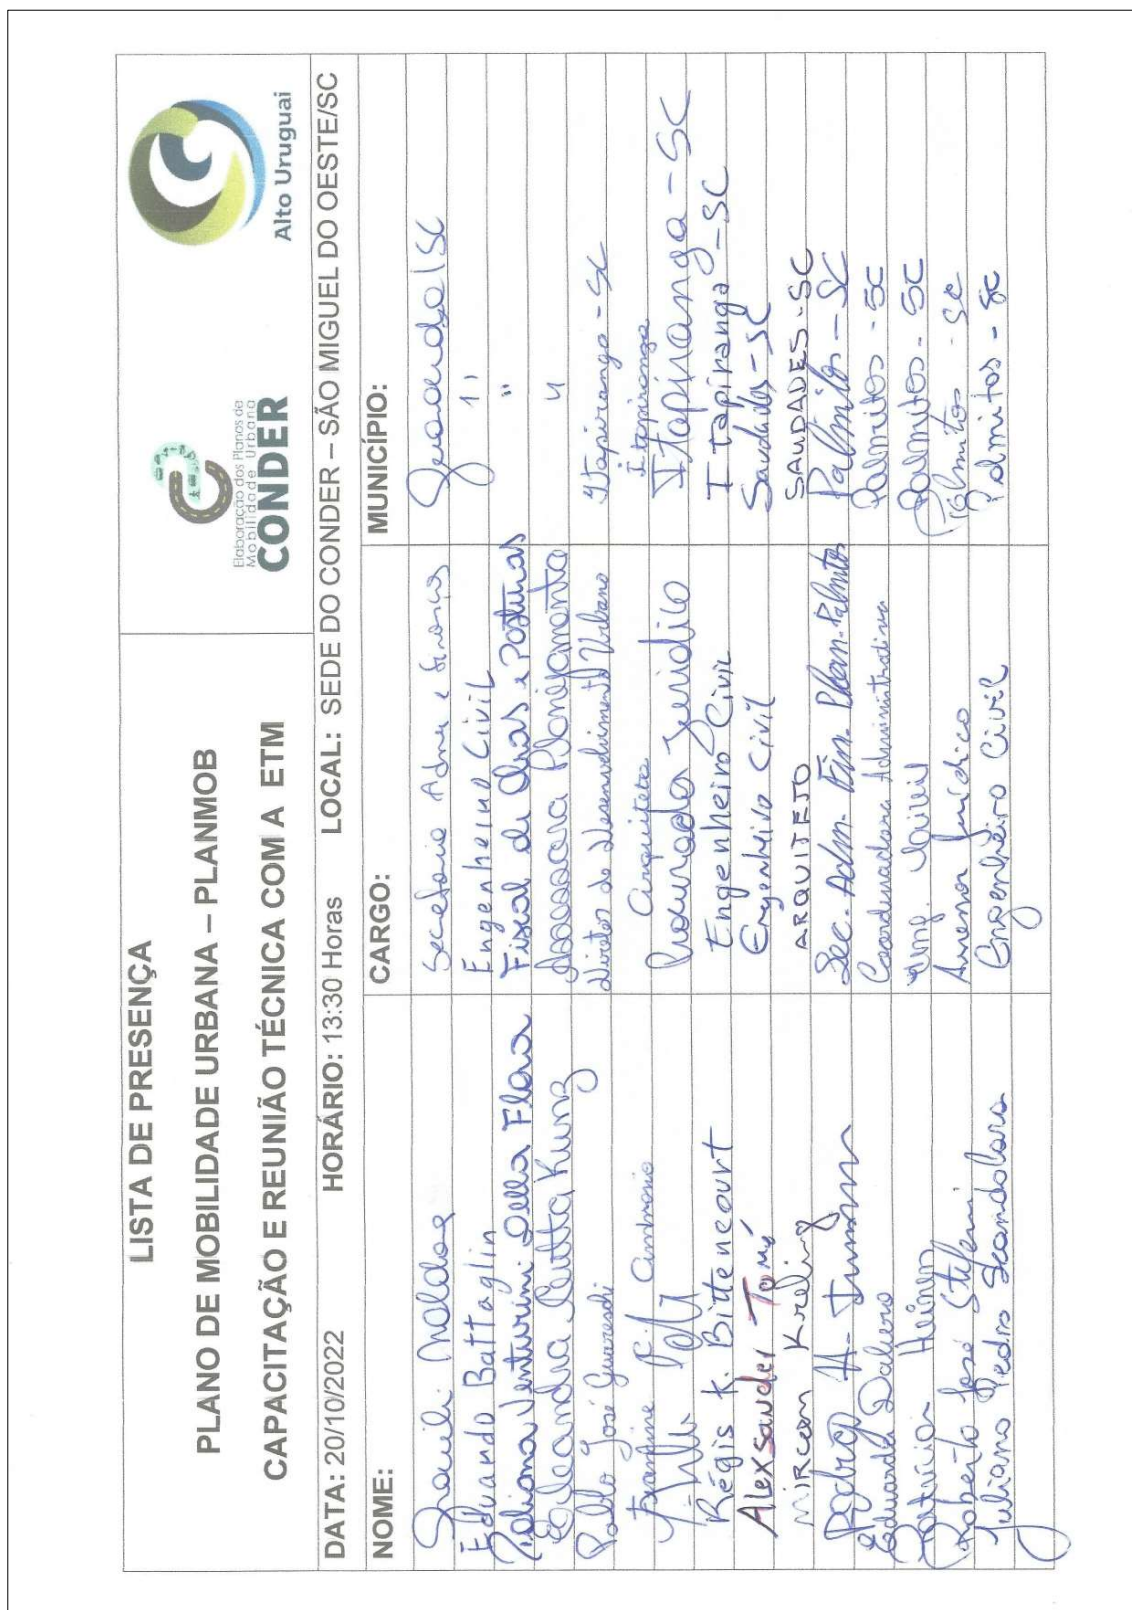 LISTA DE PRESENÇA
PLANO DE MOBILIDADE URBANA – PLANMOB
CAPACITAÇÃO E REUNIÃO TÉCNICA COM A ETM
Elaboração dos Planos de
Mobilidade Urbana
CONDER
Alto Uruguai
DATA: 20/10/2022 HORÁRIO: 13:30 Horas LOCAL: SEDE DO CONDER – SÃO MIGUEL DO OESTE/SC
NOME: CARGO: MUNICÍPIO:
Secretario Adm e
Eduando Battaglin Engenheiro Civil 11
Venturini Della Flora Fiscal de Obras e Posturas "
Kunz Assessora Planejamento
Pablo José Guareschi Diretor de Desenvolvimento Urbano Itapiranga-SC
Franfine C. Arquiteta Itapiranga
Procurador Jurídico Itapiranga-SC
Régis K. Bittencourt Engenheiro Civil Itapiranga-SC
Alexsander Tomé Engenheiro Civil Saudades-SC
Mircon Kreling ARQUITETO SAUDADES-SC
Pedro A. Sec. Adm. Fin. Plan. Palmitos Palmitos-SC
Eduarda Dalvero Coordenadora Administrativa Palmitos-SC
Heinen Palmitos-SC
Roberto José Stefani Assessor Jurídico Palmitos-SC
Juliano Pedro Scandolara Engenheiro Civil Palmitos-SC